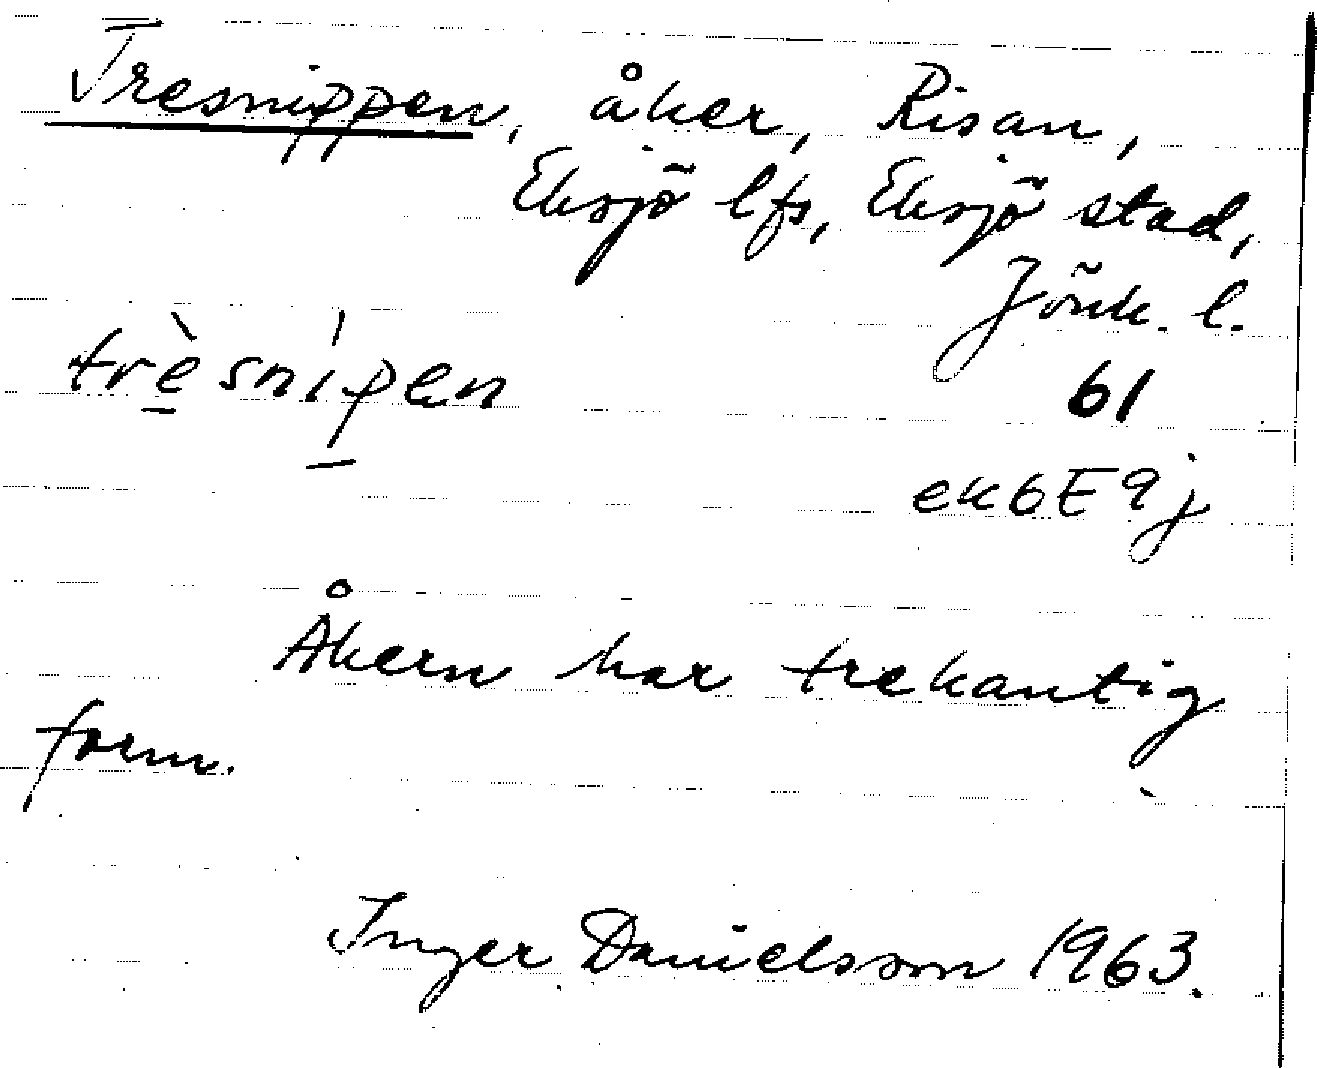 Tresnippen, åker, Risan,
Eksjö lfs, Eksjö stad,
Jönk. l.
trè̱sníp̱en
61
ek6E9j
Åkern har trekantig
form.
Inger Danielsson 1963.